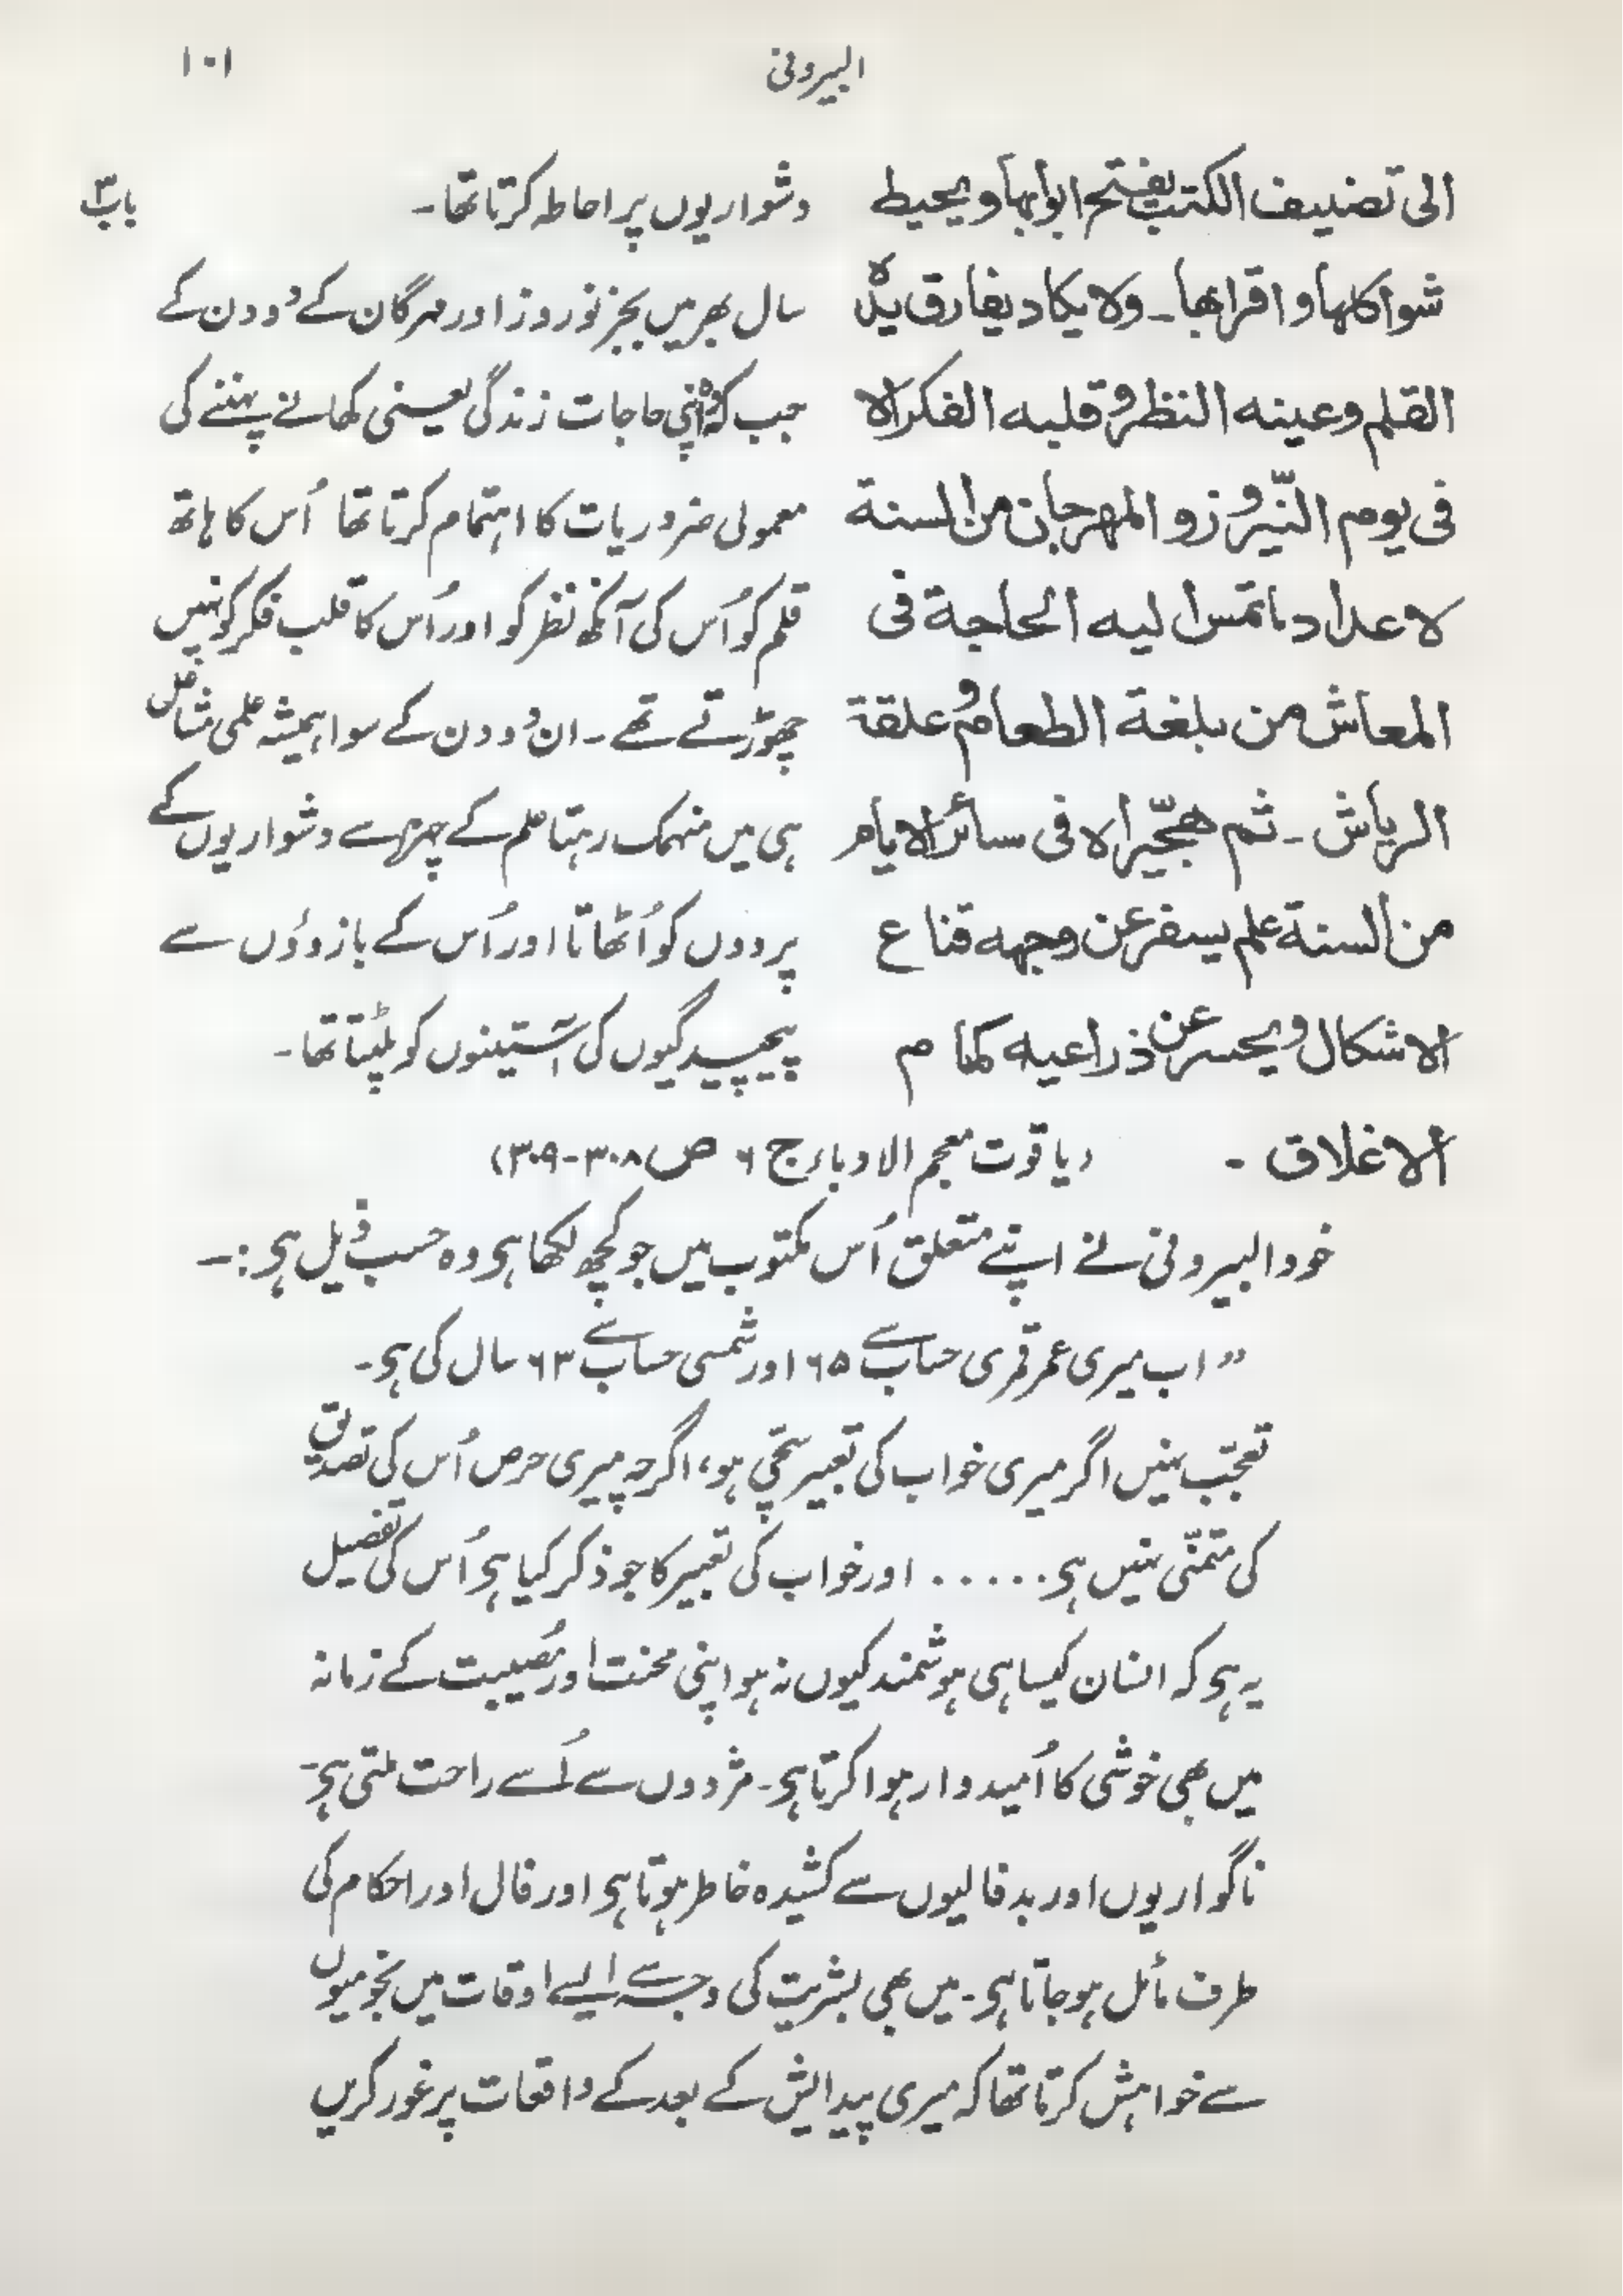 البیرونی
۱۰۱
باب۳
الی تصنیف الکتب یفتح ابوابھا ویحیط
شواکلھا و اقرابھا۔ ولا یکاد یفارق یدہ
القلم وعینہ النظر وقلبہ الفکر الا
فی یوم النّیروز و المھرجان من السنة
لاعداد ماتمس الیہ الحاجة فی
المعاش من بلغة الطعام وعلقة
الریاش۔ ثم ھجّیراہ فی سائر الایام
من السنة علم یسفر عن وجھہ قناع
الاشکال ویحسر عن ذراعیہ کمام
الاغلاق۔
دشواریوں پر احاطہ کرتا تھا۔
سال بھر میں بجز نوروز اور مہرگان کے دو دن کے
جب کہ وہ اپنی حاجات زندگی یعنی کھانے پہننے کی
معمولی ضروریات کا اہتمام کرتا تھا اُس کا ہاتھ
قلم کو اُس کی آنکھ نظر کو اور اُس کا قلب فکر کو نہیں
چھوڑتے تھے۔ ان دو دن کے سوا ہمیشہ علمی مشاغل
ہی میں منہمک رہتا علم کے چہرے سے دشواریوں کے
پردوں کو اُٹھاتا اور اُس کے بازوؤں سے
پیچیدگیوں کی آستینوں کو پلٹتا تھا۔
(یاقوت معجم الادباء ج ۶ ص ۳۰۸-۳۰۹)
خود البیرونی نے اپنے متعلق اُس مکتوب میں جو کچھ لکھا ہی وہ حسب ذیل ہی:۔
”اب میری عمر قمری حساب سے ۶۵ اور شمسی حساب سے ۶۳ سال کی ہی۔
تعجّب نہیں اگر میری خواب کی تعبیر سچّی ہو، اگرچہ میری حرص اُس کی تصدیق
کی متمنّی نہیں ہی..... اور خواب کی تعبیر کا جو ذکر کیا ہی اُس کی تفصیل
یہ ہی کہ انسان کیسا ہی ہوشمند کیوں نہ ہو اپنی محنت اور مُصیبت کے زمانہ
میں بھی خوشی کا اُمیدوار ہوا کرتا ہی۔ مژدوں سے اُسے راحت ملتی ہی۔
ناگواریوں اور بدفالیوں سے کشیدہ خاطر ہوتا ہی اور فال اور احکام کی
طرف مائل ہو جاتا ہی۔ میں بھی بشریت کی وجہ سے ایسے اوقات میں نجومیوں
سے خواہش کرتا تھا کہ میری پیدایش کے بعد کے واقعات پر غور کریں